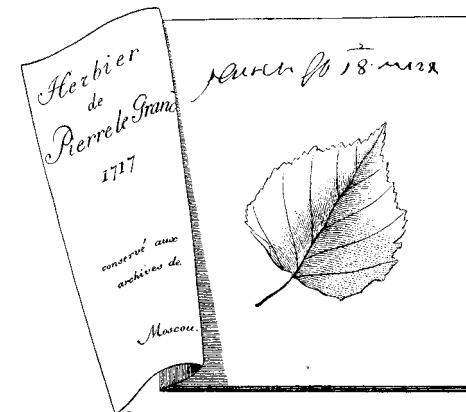 Herbier
de
Pierre le Grand
1717
conservé aux
archives de
Moscou.
18